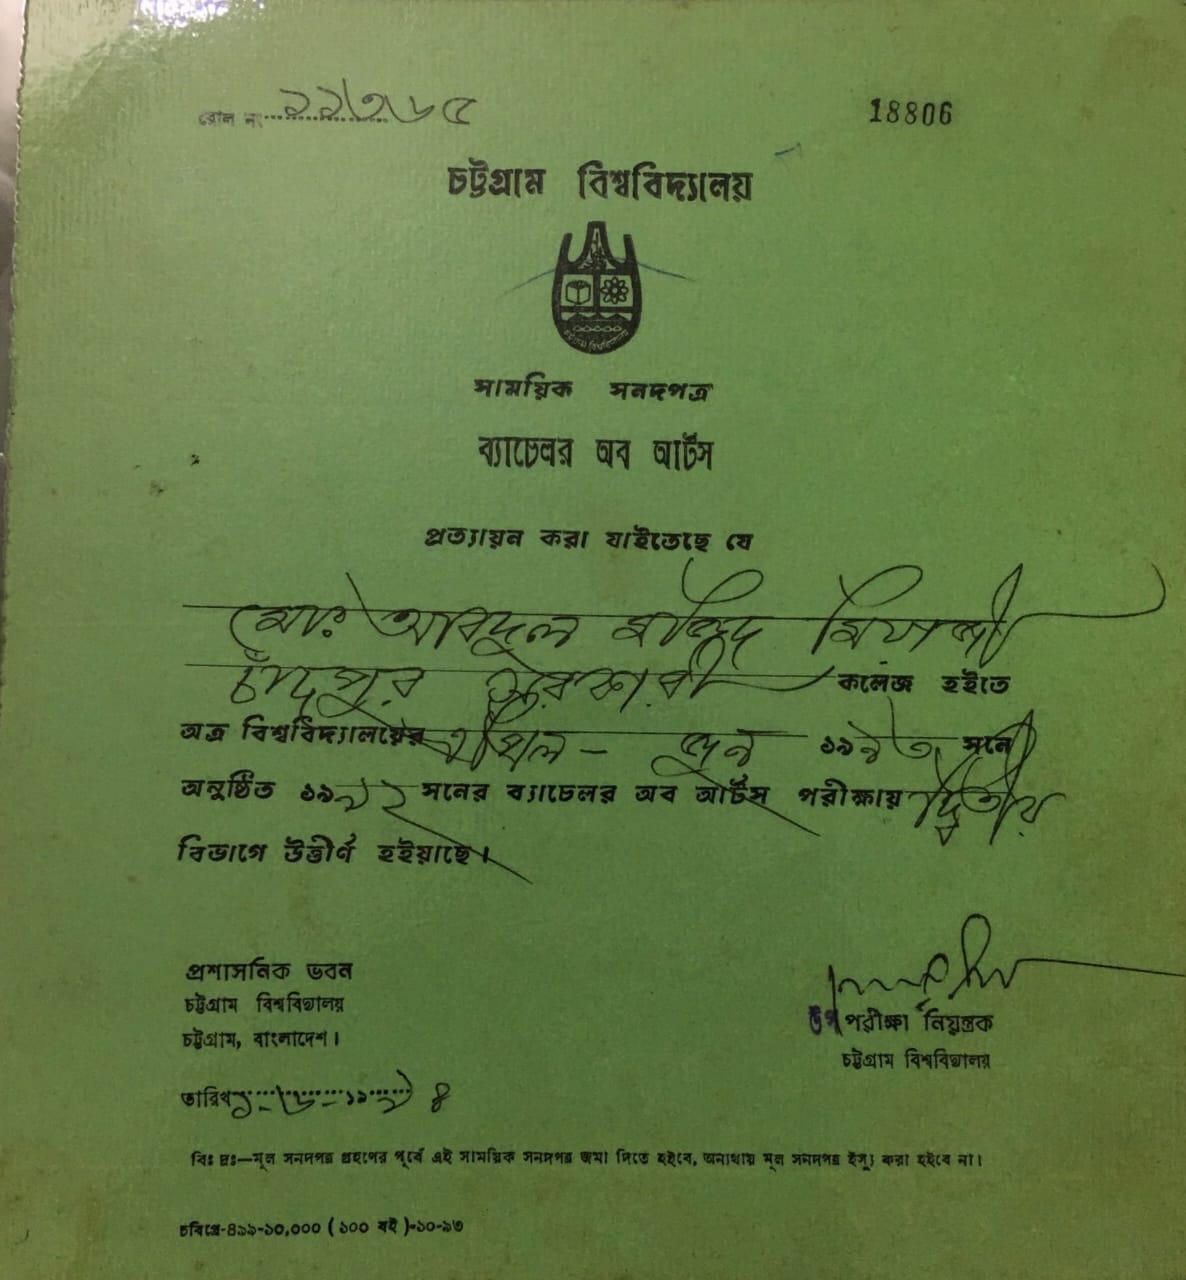 রোল নং ১১৩৬৫ 18806
চট্টগ্রাম বিশ্ববিদ্যালয়
সাময়িক সনদপত্র
ব্যাচেলর অব আর্টস
প্রত্যায়ন করা যাইতেছে যে
মোঃ আবদুল
চাঁদপুর সরকারী কলেজ হইতে
অত্র বিশ্ববিদ্যালয়ের এপ্রিল - জুন ১৯৯৩ সনে
অনুষ্ঠিত ১৯৯২ সনের ব্যাচেলর অব আর্টস পরীক্ষায় দ্বিতীয়
বিভাগে উত্তীর্ণ হইয়াছে।
প্রশাসনিক ভবন
চট্টগ্রাম বিশ্ববিদ্যালয়
চট্টগ্রাম, বাংলাদেশ।
উপ পরীক্ষা নিয়ন্ত্রক
চট্টগ্রাম বিশ্ববিদ্যালয়
তারিখ ১-৬-১৯৯৪
বিঃ দ্রঃ—মূল সনদপত্র গ্রহণের পূর্বে এই সাময়িক সনদপত্র জমা দিতে হইবে, অন্যথায় মূল সনদপত্র ইস্যু করা হইবে না।
চবিপ্রে-৪৯৯-১০,০০০ (১০০ বই)-১০-৯৩